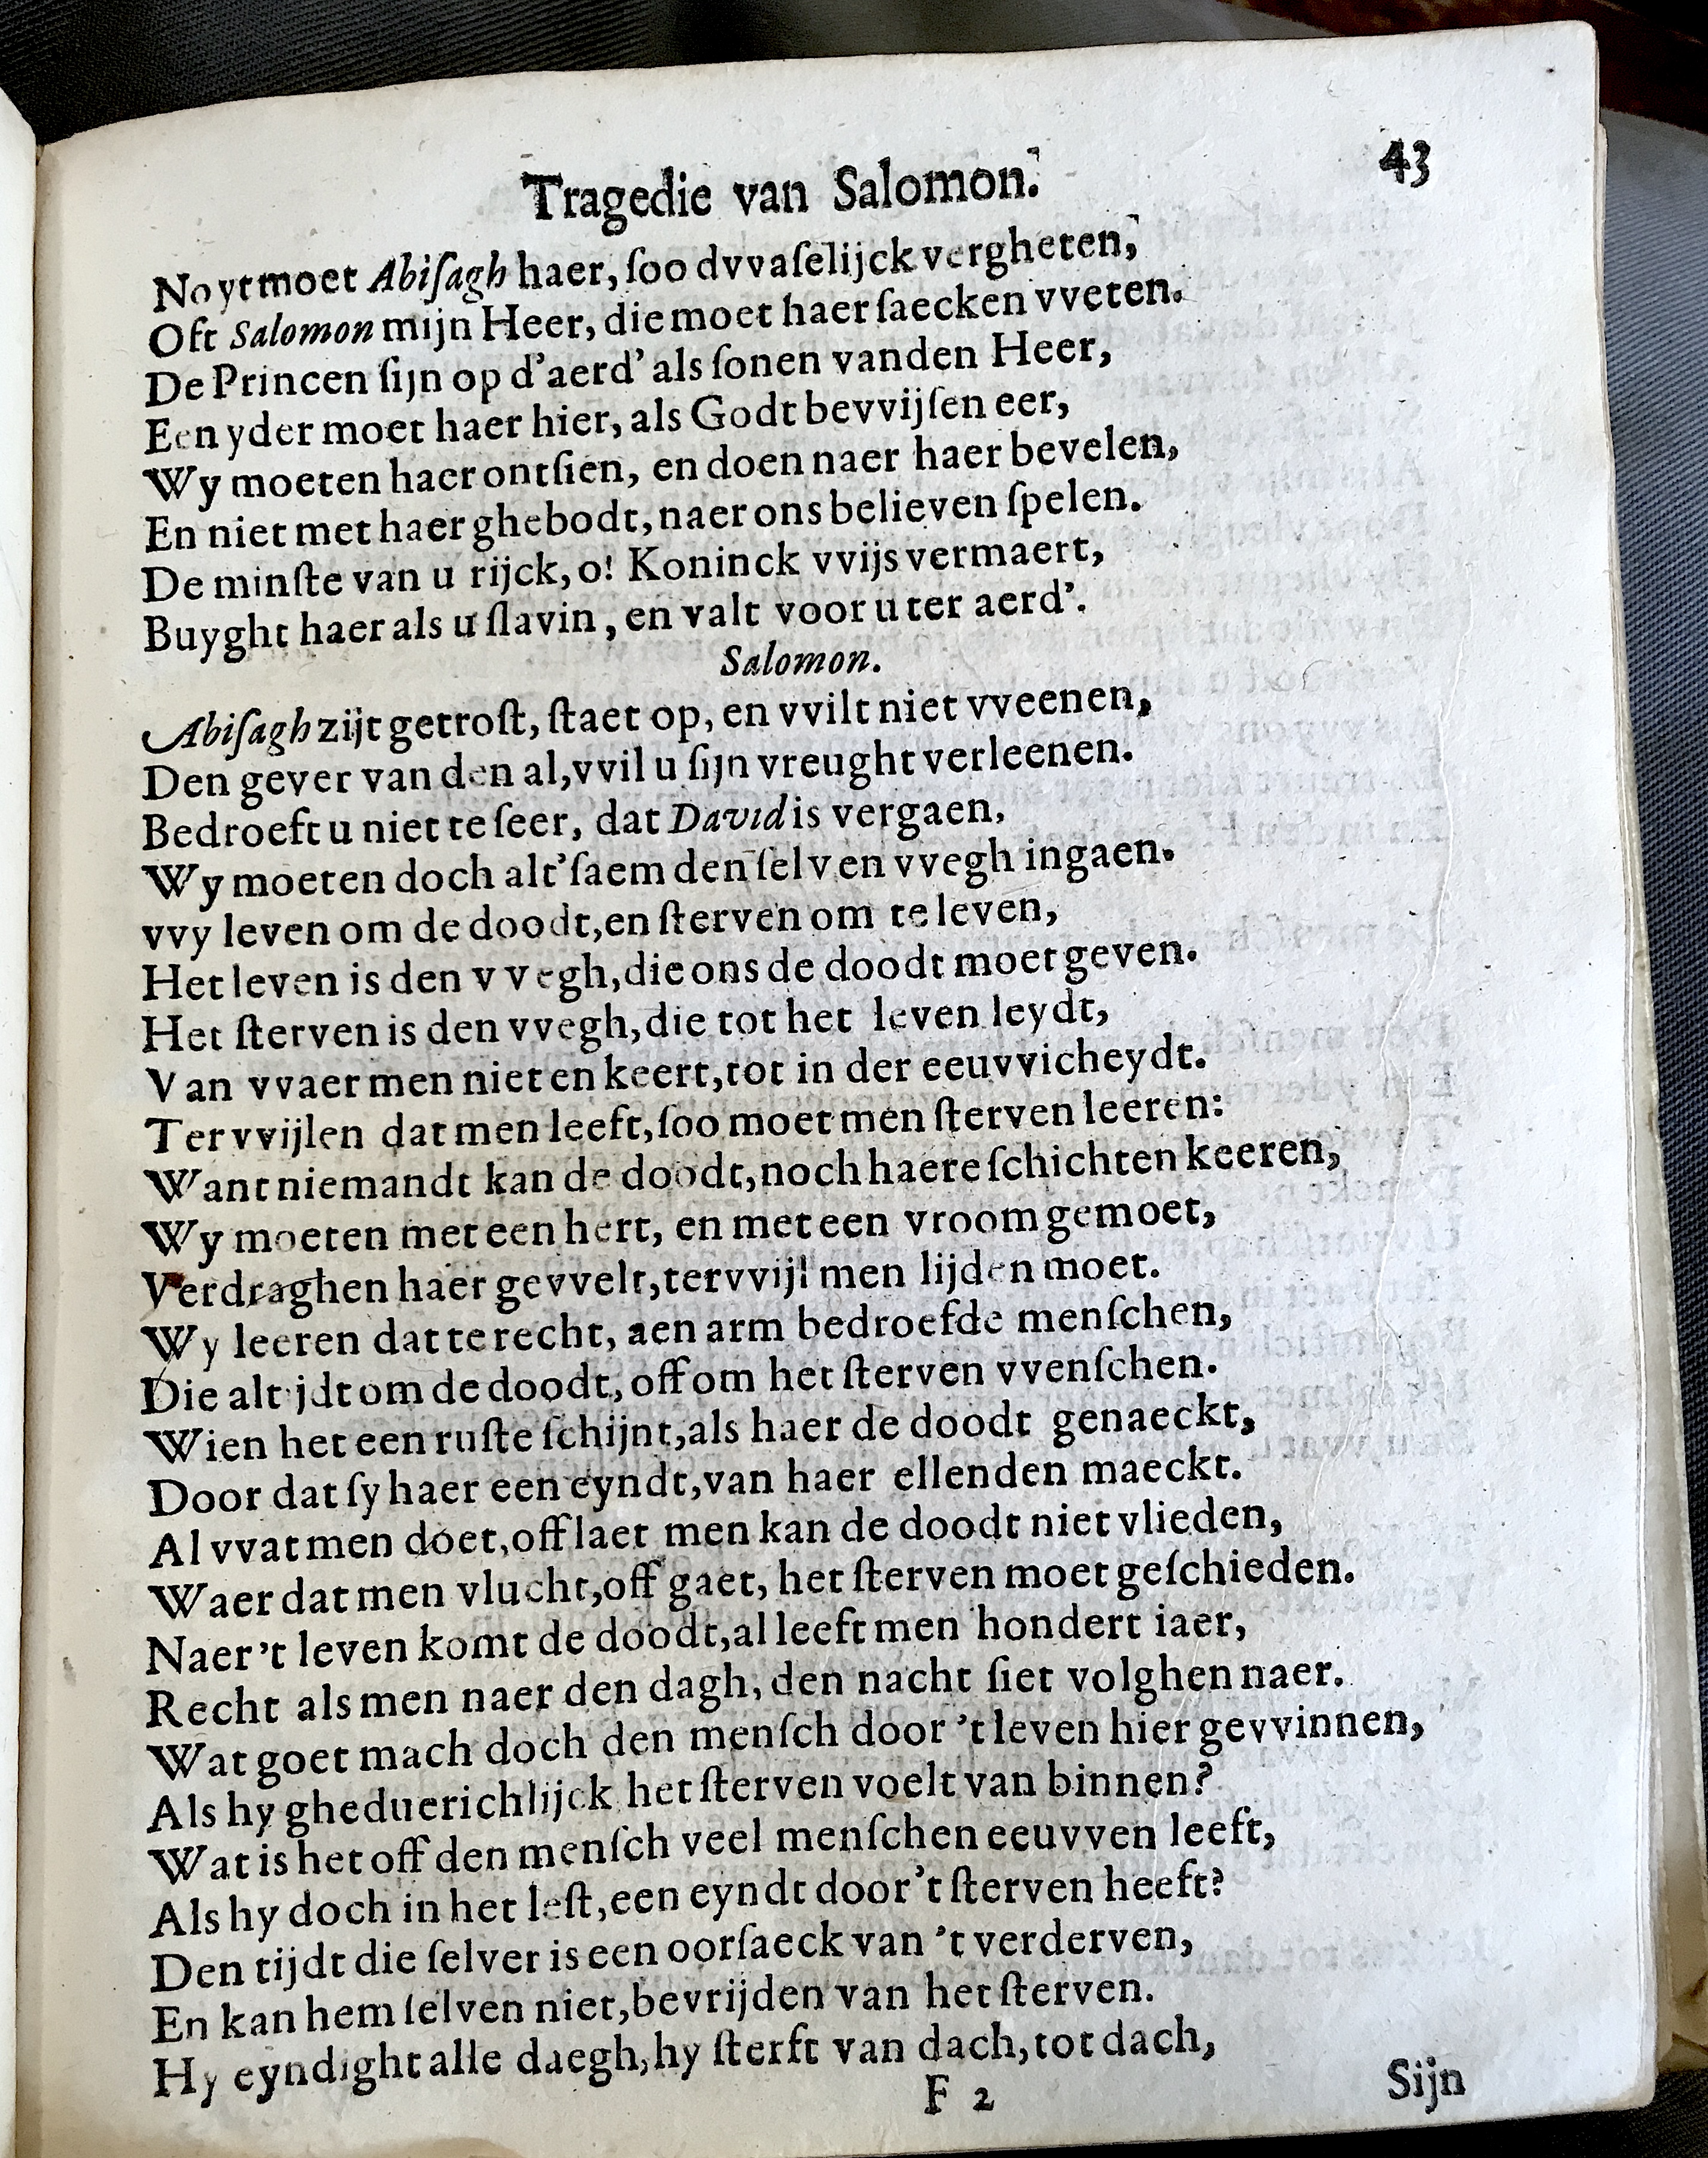 Tragedie van Salomon.
43
Noyt moet Abiſagh haer, ſoo dvvaſelijck vergheten,
Oft Salomon mijn Heer, die moet haer ſaecken vveten.
De Princen ſijn op d'aerd' als ſonen vanden Heer,
Een yder moet haer hier, als Godt bevvijſen eer,
Wy moeten haer ontſien, en doen naer haer bevelen,
En niet met haer ghebodt, naer ons believen ſpelen.
De minſte van u rijck, o! Koninck vvijs vermaert,
Buyght haer als u ſlavin, en valt voor u ter aerd'.
Salomon.
Abiſagh zijt getroſt, ſtaet op, en vvilt niet vveenen,
Den gever van den al, vvil u ſijn vreught verleenen.
Bedroeft u niet te ſeer, dat David is vergaen,
Wy moeten doch alt'ſaem den ſelven vvegh ingaen.
vvy leven om de doodt, en ſterven om te leven,
Het leven is den vvegh, die ons de doodt moet geven.
Het ſterven is den vvegh, die tot het leven leydt,
Van vvaer men niet en keert, tot in der eeuvvicheydt.
Ter vvijlen dat men leeft, ſoo moet men ſterven leeren:
Want niemandt kan de doodt, noch haere ſchichten keeren,
Wy moeten met een hert, en met een vroom gemoet,
Verdraghen haer gevvelt, tervvijl men lijden moet.
Wy leeren dat te recht, aen arm bedroefde menſchen,
Die altijdt om de doodt, off om het ſterven vvenſchen.
Wien het een ruſte ſchijnt, als haer de doodt genaeckt,
Door dat ſy haer een eyndt, van haer ellenden maeckt.
Al vvat men doet, off laet men kan de doodt niet vlieden,
Waer dat men vlucht, off gaet, het ſterven moet geſchieden.
Naer 't leven komt de doodt, al leeft men hondert iaer,
Recht als men naer den dagh, den nacht ſiet volghen naer.
Wat goet mach doch den menſch door 't leven hier gevvinnen,
Als hy gheduerichlijck het ſterven voelt van binnen?
Wat is het off den menſch veel menſchen eeuvven leeft,
Als hy doch in het leſt, een eyndt door 't ſterven heeft?
Den tijdt die ſelver is een oorſaeck van 't verderven,
En kan hem ſelven niet, bevrijden van het ſterven.
Hy eyndight alle daegh, hy ſterft van dach, tot dach,
F 2
Sijn